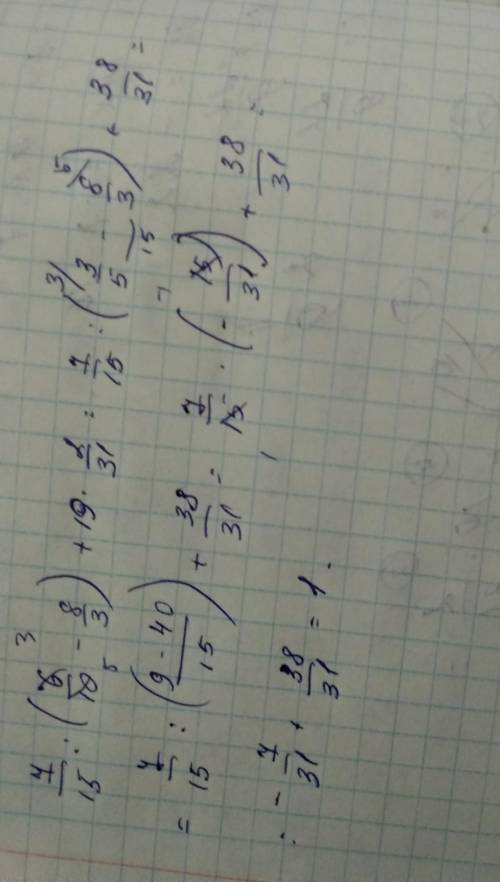 7/15 : (6/10 - 8/3) + 19 · 2/31 = 7/15 : (3/5 - 8/3) + 38/31 =
= 7/15 : (9 - 40 / 15) + 38/31 = 7/15 · (- 15/31) + 38/31 =
= - 7/31 + 38/31 = 1.